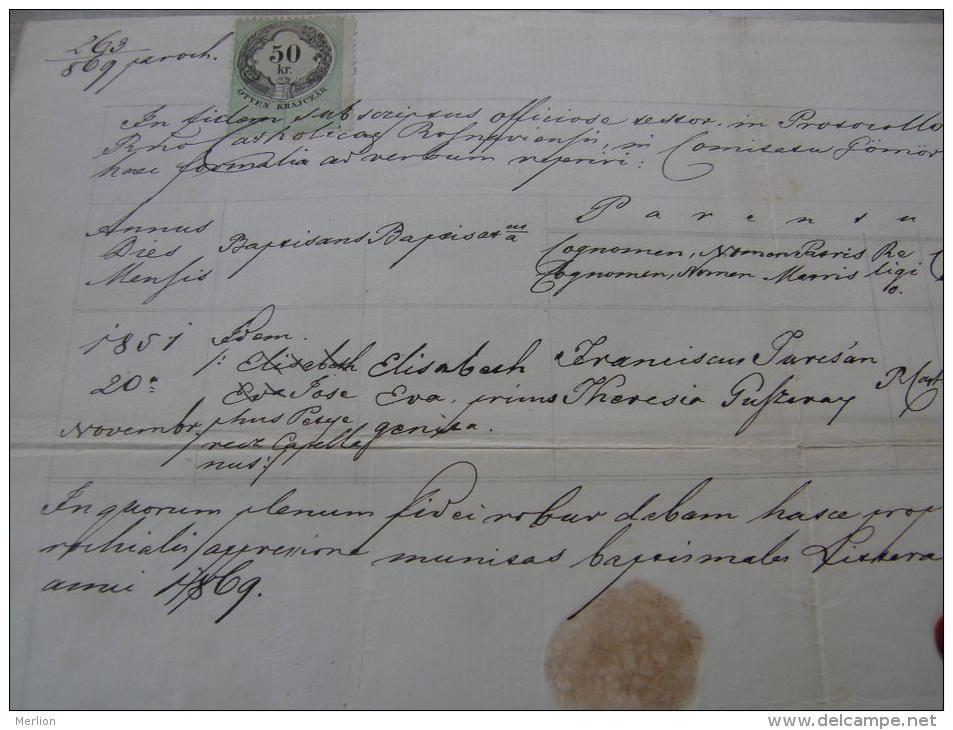 263/869 paroch.
50
kr.
ÖTVEN KRAJCZÁR
In fidem subscriptus officiose testor, in Protocollo
Rno Catholicae Rosnaviensis, in Comitatu Gömör
haec formalia ad verbum reperiri:
Annus
Dies
Mensis
Baptisans
Baptisat us/a
Parentu
Cognomen, Nomen Patris
Cognomen, Nomen Matris
Re
ligi
o.
1851
20a
Novembr.
Idem
/: Elisabeth
Eva Jose
phus
Capella
nus:/
Elisabeth
Eva, primo
genita.
Franciscus
Theresia
In quorum plenum fidei robur dabam hasce
rochialis appressione munitas baptismales Littera
anni 1869.
Merlion
www.delcampe.net